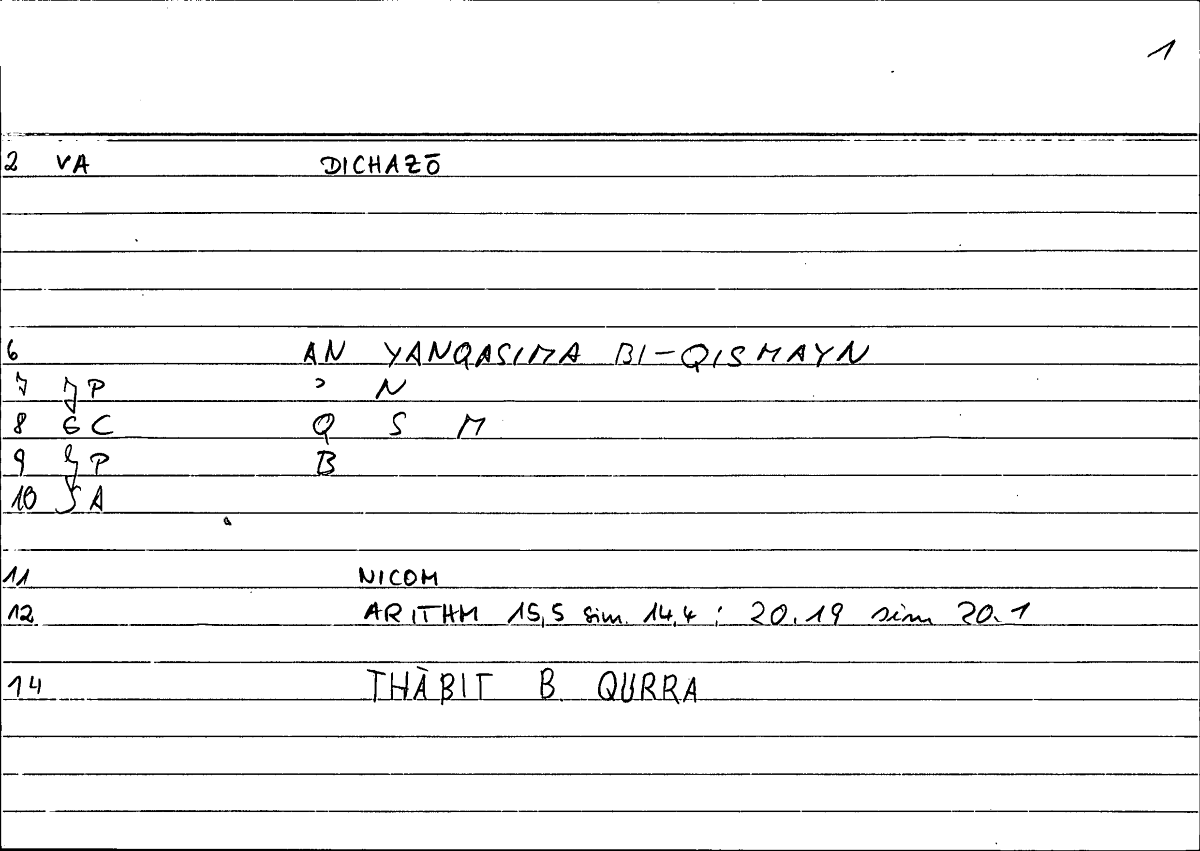 1
2 VA DICHAZŌ
6 AN YANQASIMA BI-QISMAYN
7 P ʾ N
8 GC Q S M
9 P B
10 A
11 NICOM
12 ARITHM 15,5 sim. 14,4 ; 20.19 sim 20.1
14 THĀBIT B. QURRA